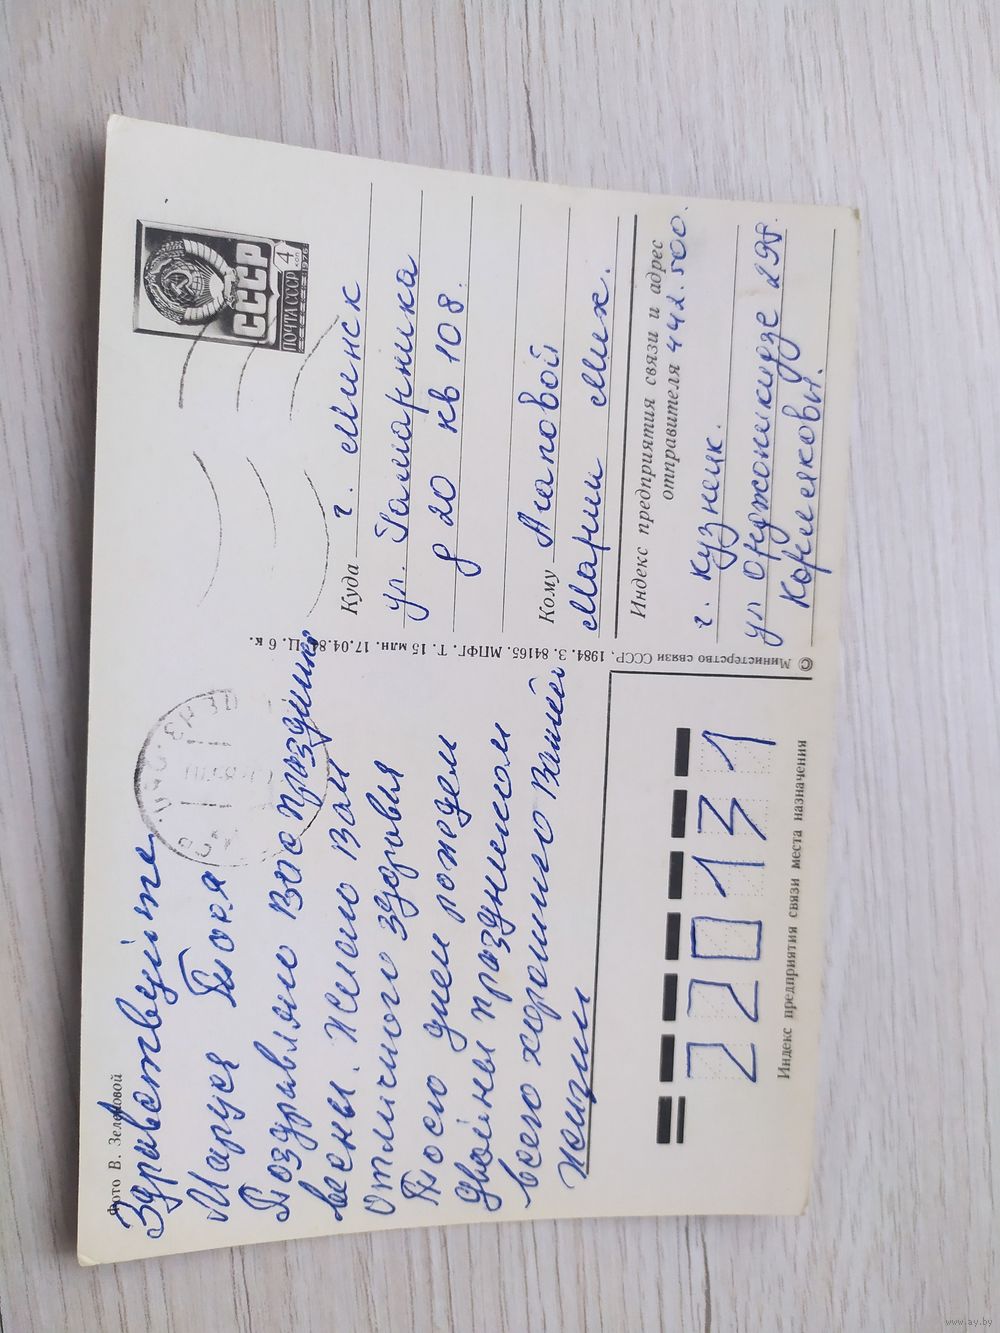 Фото В. Зеленовой
Здравствуйте
Маруся Тося
Поздравляю Вас праздником
весны. Желаю Вам
Отличного здоровья
Тосю днем рожден
двойным праздником
всего хорошего Вашей
жизни
СССР
ПОЧТА СССР
4
КОП
1976
Куда г. Минск
ул. Гамарника
д 20 кв 108.
Кому Агаповой
Марии Мих.
Индекс предприятия связи и адрес
отправителя 442.500.
г. кузнецк.
ул Онджоникидзе 298.
© Министерство связи СССР, 1984. З. 84165. МПФГ. Т. 15 млн. 17.04.84. Ц. 6 к.
220131
Индекс предприятия связи места назначения
www.ay.by